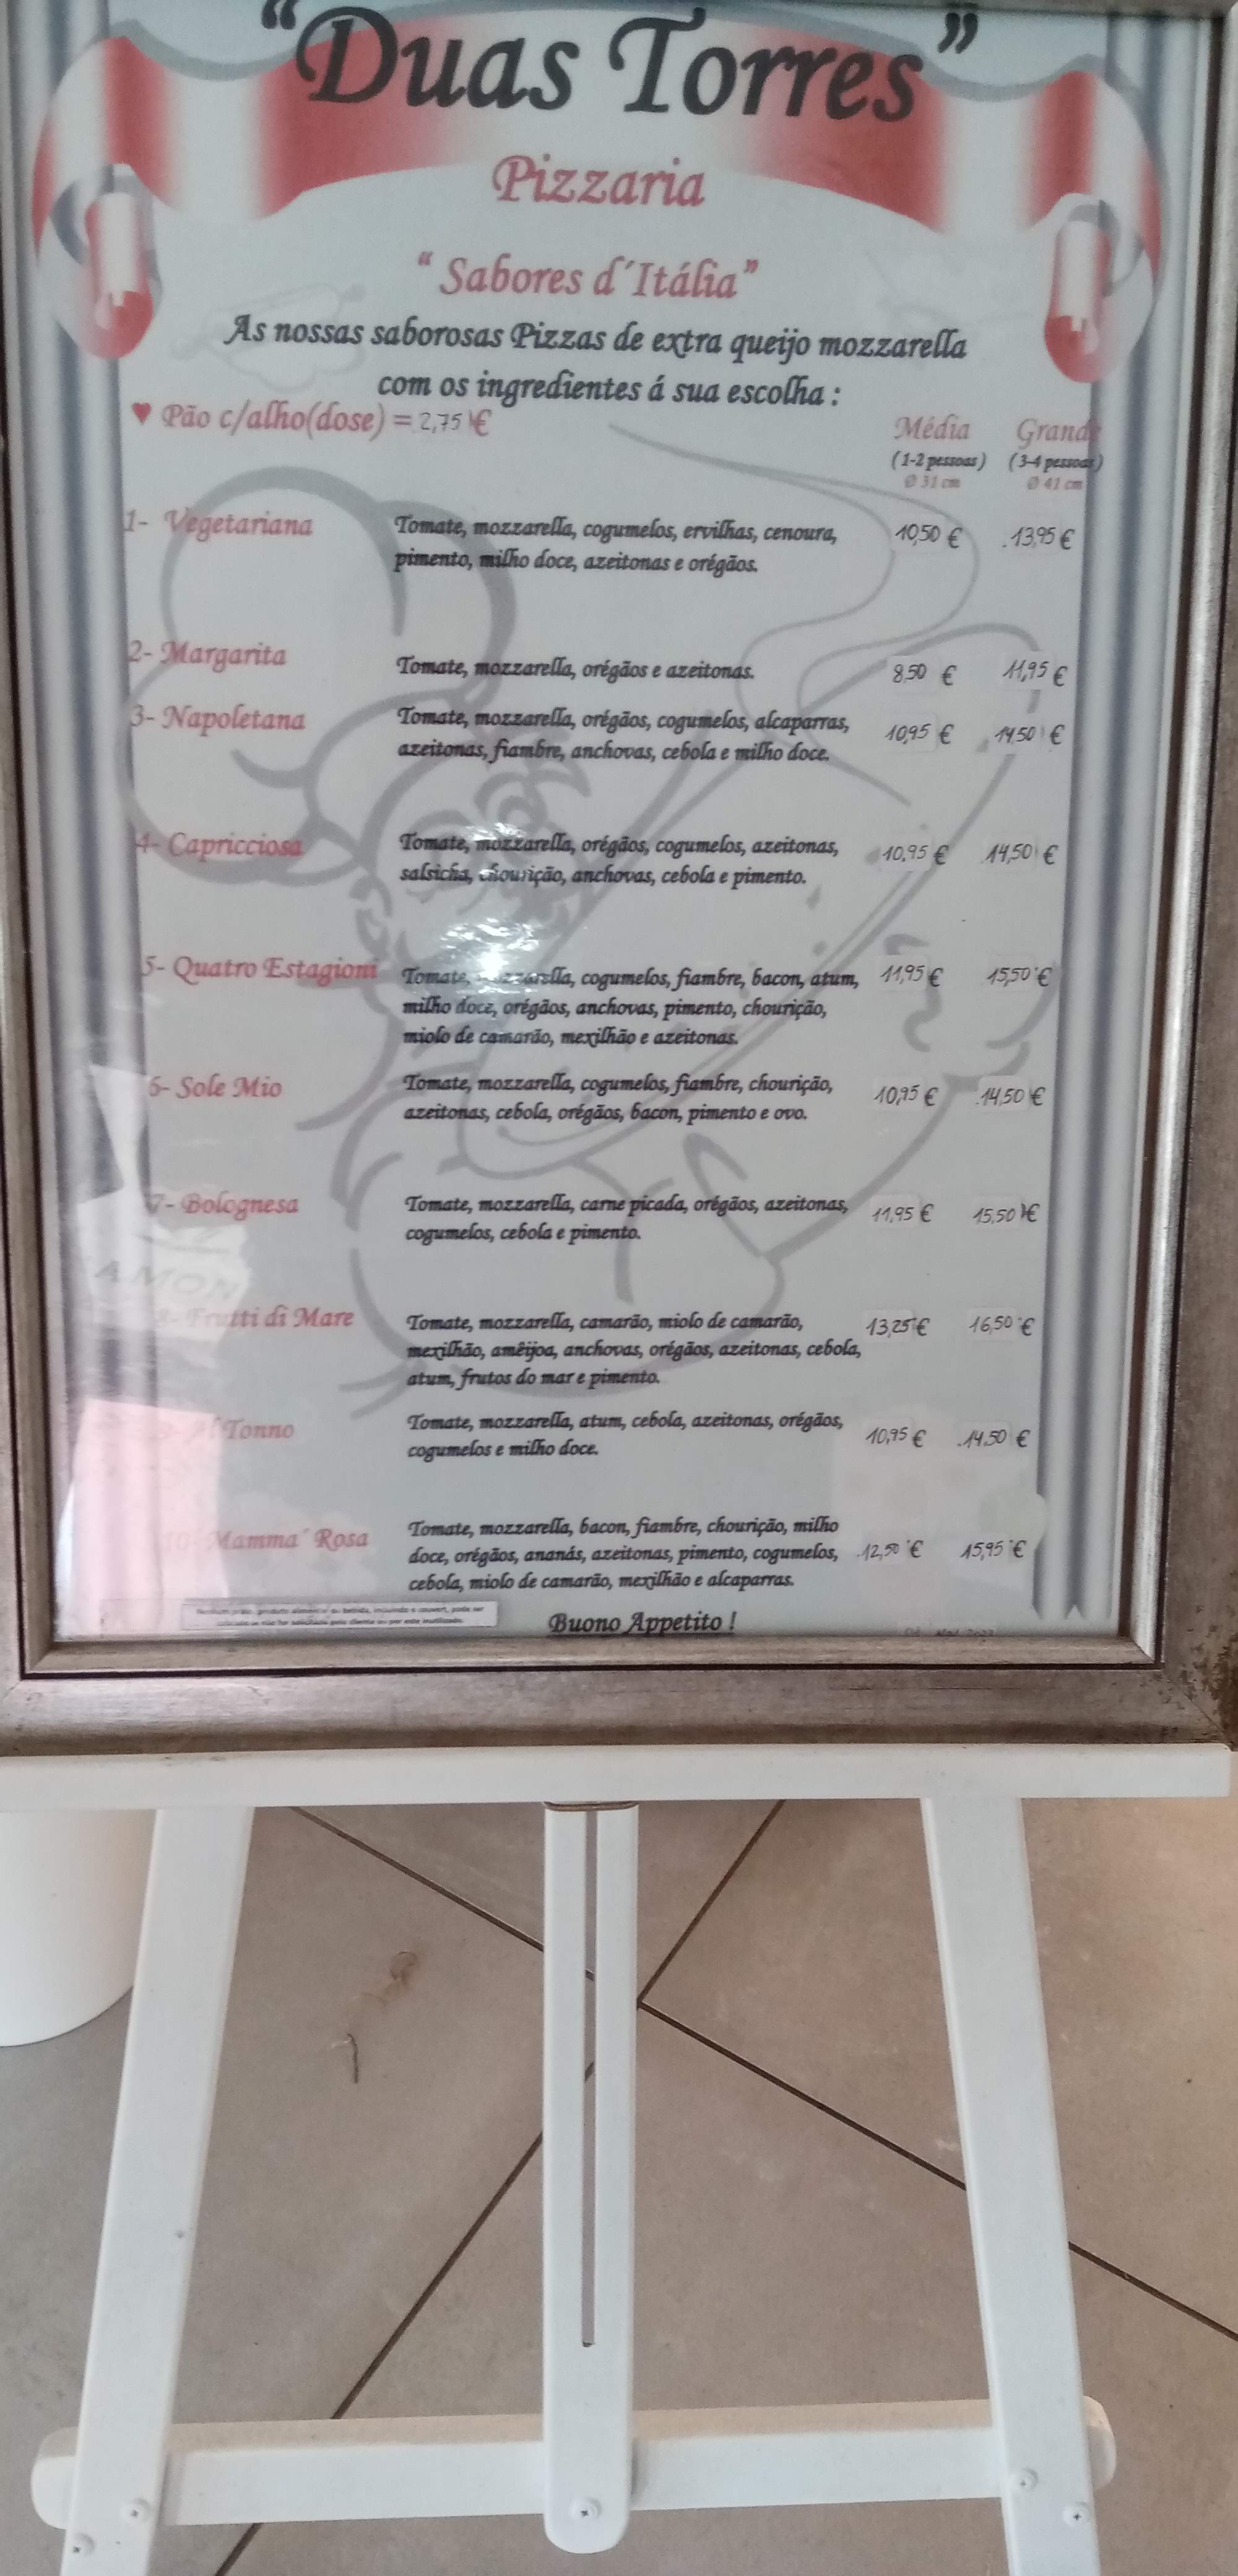 "Duas Torres"
Pizzaria
"Sabores d´Itália"
As nossas saborosas Pizzas de extra queijo mozzarella
com os ingredientes á sua escolha :
♥ Pão c/alho(dose) = 2,75 €
Média Grande
(1-2 pessoas) (3-4 pessoas)
Ø 31 cm Ø 41 cm
1- Vegetariana Tomate, mozzarella, cogumelos, ervilhas, cenoura, 10,50 € 13,95 €
pimento, milho doce, azeitonas e orégãos.
2- Margarita Tomate, mozzarella, orégãos e azeitonas. 8,50 € 11,95 €
3- Napoletana Tomate, mozzarella, orégãos, cogumelos, alcaparras, 10,95 € 14,50 €
azeitonas, fiambre, anchovas, cebola e milho doce.
4- Capricciosa Tomate, mozzarella, orégãos, cogumelos, azeitonas, 10,95 € 14,50 €
salsicha, chourição, anchovas, cebola e pimento.
5- Quatro Estagioni Tomate, mozzarella, cogumelos, fiambre, bacon, atum, 11,95 € 15,50 €
milho doce, orégãos, anchovas, pimento, chourição,
miolo de camarão, mexilhão e azeitonas.
6- Sole Mio Tomate, mozzarella, cogumelos, fiambre, chourição, 10,95 € 14,50 €
azeitonas, cebola, orégãos, bacon, pimento e ovo.
7- Bolognesa Tomate, mozzarella, carne picada, orégãos, azeitonas, 11,95 € 15,50 €
cogumelos, cebola e pimento.
8- Frutti di Mare Tomate, mozzarella, camarão, miolo de camarão, 13,25 € 16,50 €
mexilhão, amêijoa, anchovas, orégãos, azeitonas, cebola,
atum, frutos do mar e pimento.
Tonno Tomate, mozzarella, atum, cebola, azeitonas, orégãos, 10,95 € 14,50 €
cogumelos e milho doce.
10- Mamma´ Rosa Tomate, mozzarella, bacon, fiambre, chourição, milho
doce, orégãos, ananás, azeitonas, pimento, cogumelos, 12,50 € 15,95 €
cebola, miolo de camarão, mexilhão e alcaparras.
Nenhum prato, produto alimentar ou bebida, incluindo o couvert, pode ser
cobrado se não for solicitado pelo cliente ou por este inutilizado.
Buono Appetito !